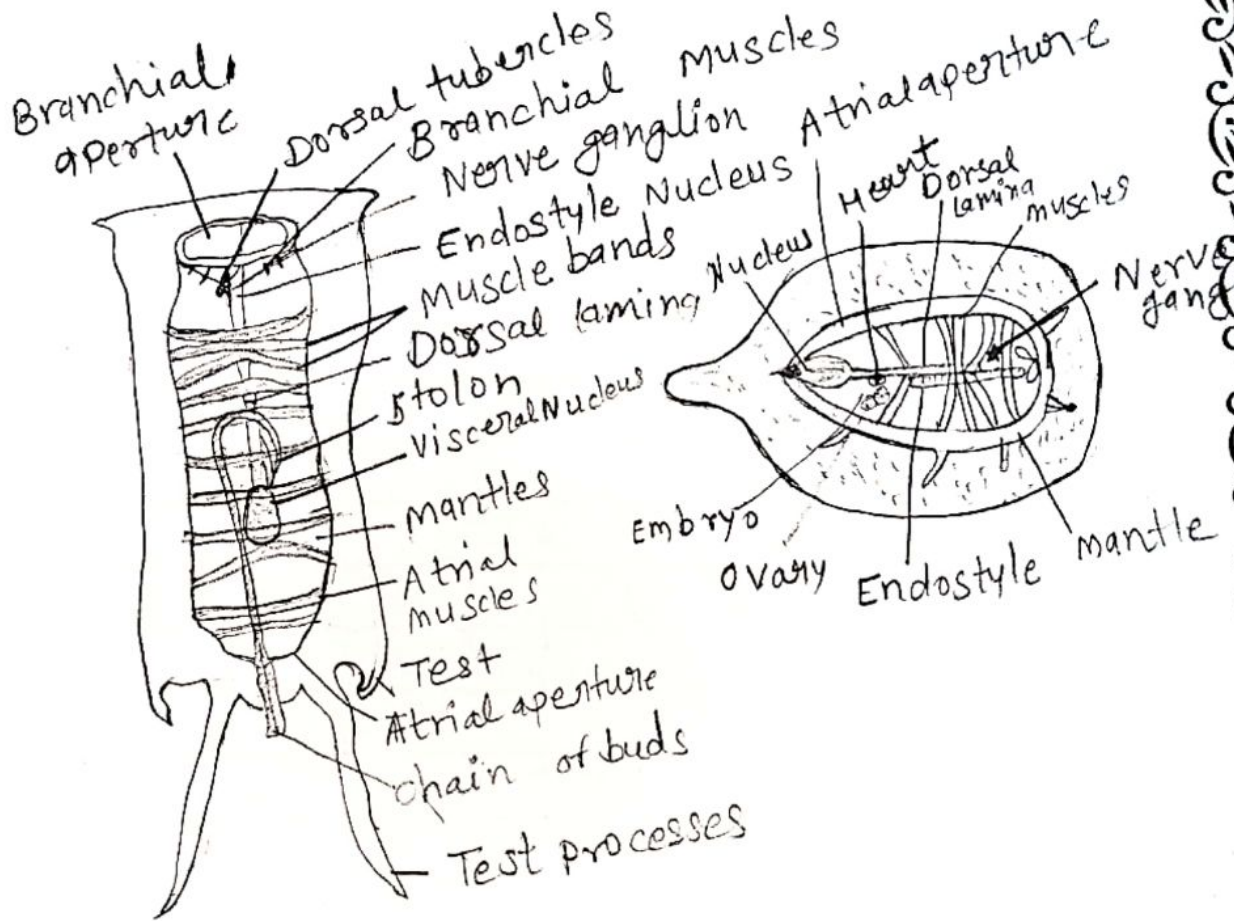 Branchial
aperture
Dorsal tubercles
Branchial Muscles
Nerve ganglion
Endostyle Nucleus
Muscle bands
Dorsal laming
Stolon
Visceral Nucleus
Mantles
Atrial
muscles
Test
Atrial aperture
chain of buds
Test processes
Atrial aperture
Heart
Dorsal
lamina
muscles
Nucleus
Nerve
gang
Embryo
Ovary
Endostyle
Mantle